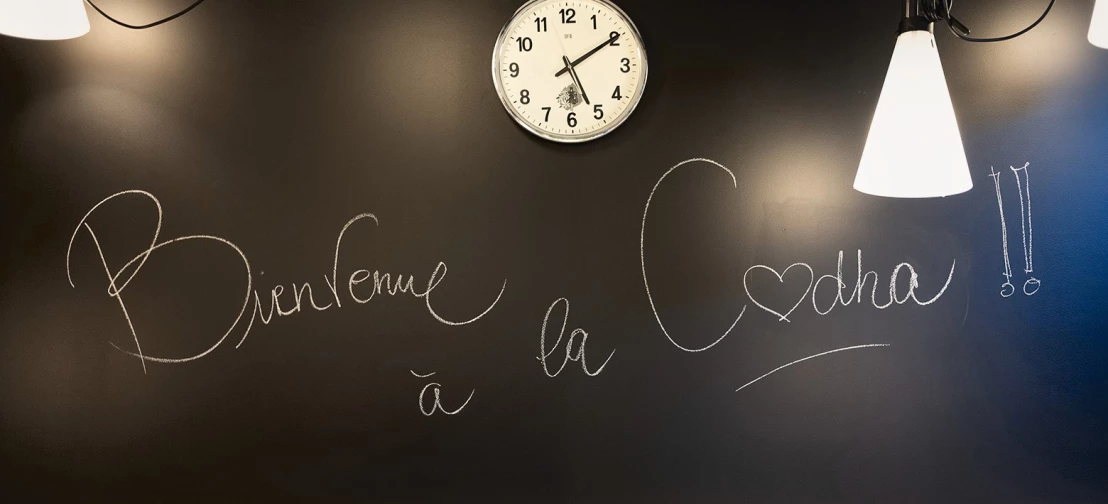 12
1
2
3
4
5
6
7
8
9
10
11
Bienvenue
à
la
C♡dha !!